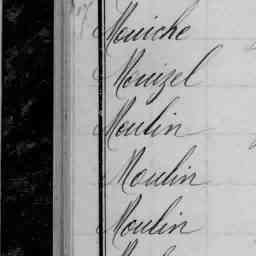 Mouiche
Mouizel
Moulin
Moulin
Moulin